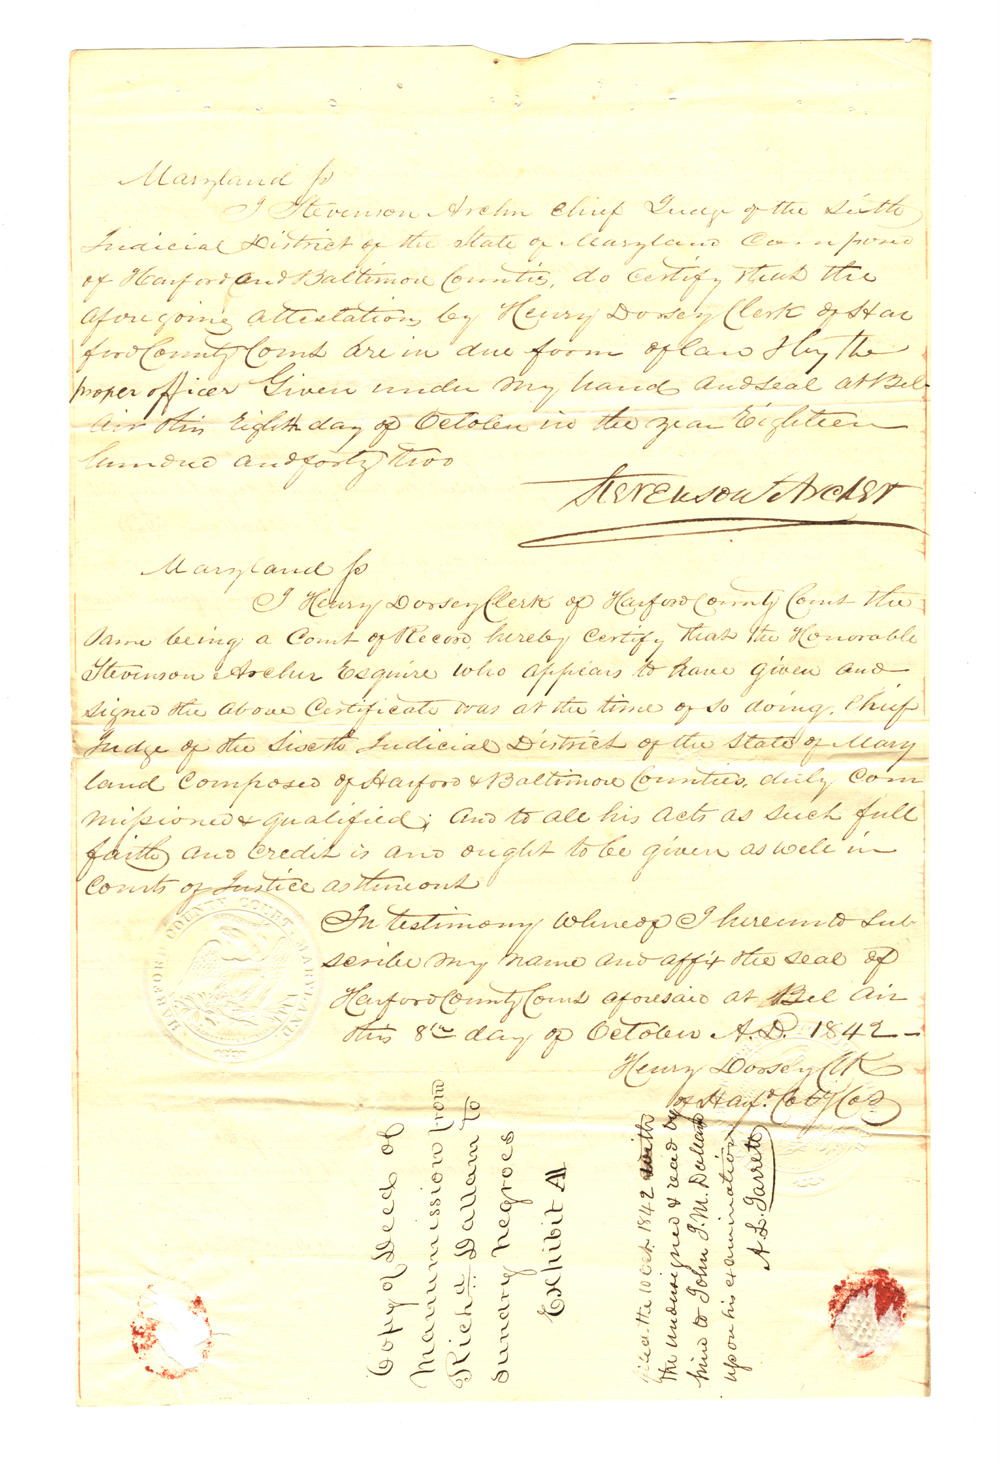 Maryland ss
I Stevenson Archer Chief Judge of the Sixth
Judicial District of the State of Maryland Composed
of Harford and Baltimore Counties, do certify that the
aforegoing attestation, by Henry Dorsey Clerk of Har
ford County Court are in due form of law & by the
proper officer Given under my hand and seal at Bel-
Air this Eighth day of October in the year Eighteen
hundred and forty two
Stevenson Archer
Maryland ss
I Henry Dorsey Clerk of Harford County Court the
Same being a Court of Record, hereby certify that the Honorable
Stevenson Archer Esquire who appears to have given and
signed the above Certificate was at the time of so doing, Chief
Judge of the Sixth Judicial District of the State of Mary
land Composed of Harford & Baltimore Counties, duly com
missioned & qualified; and to all his acts as such full
faith and credit is and ought to be given as well in
Courts of Justice as thereout
In testimony whereof I hereunto sub-
scribe my name and affix the seal of
Harford County Court aforesaid at Bel Air
this 8th day of October A.D. 1842 —
Henry Dorsey Clk
of Harfd. Coty Cot
HARFORD COUNTY COURT MARYLAND
Copy of Deed of
Manumission from
Richd Dallam to
sundry negroes
Exhibit A
filed the 10 Oct. 1842 with
the undersigned & read by
him to John J. M. Dallam
upon his examination
A. L. Jarrett